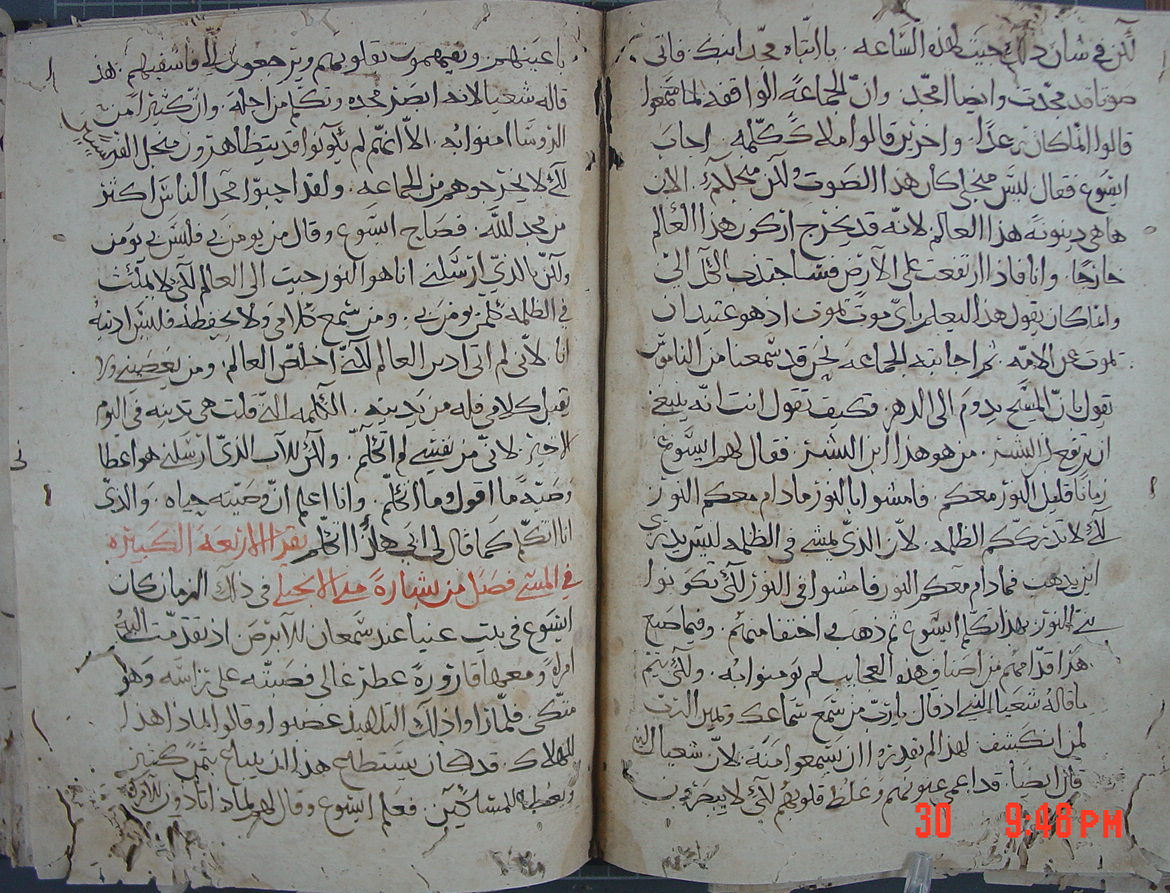 لكن في شان ذلك جيت لهذه الساعه. يا ابتاه مجد ابنك. فاتى
صوتا قد مجدت وايضا امجد. وان الجماعة الواقفه لما سمعوا
قالوا انما كان رعدا. واخرين قالوا ملاك كلمه. اجاب
ايسوع فقال ليس منجلي كان هذا الصوت ولكن منجلكم. الان
هاهي دينونة هذا العالم لانه قد يخرج اركون هذا العالم
خارجا. وانا فاذا ارتفعت على الارض فساجتذب الكل الي
وانما كان يقول هذا ليعلم باي موت يموت اذ هو عتيد ان
يموت عن الامه. ثم اجابته الجماعه نحن قد سمعنا من الناموس
يقول بان المسيح يدوم الى الدهر. فكيف تقول انت انه ينبغي
ان يرتفع ابن البشر. من هو هذا ابن البشر. فقال لهم ايسوع
زمانا قليل النور معكم. فامشوا بالنور مادام معكم النور
لكي لا تدرككم الظلمه. لان الذي يمشي في الظلمه ليس يدري
اين يذهب فمادام معكم النور فامنوا في النور لكي تكونوا
بني النور بهذا تكلم ايسوع ثم ذهب في اختفا منهم. وفيما صنع
هذا قدامهم من اصناف هذه العجايب لم يومنوا به. ولكي يتم
ما قاله شعيا النبي اذ قال يا رب من سمع سماعك ولمن الرب
لمن انكشف لهذا لم يقدروا ان يسمعوا منه. لان شعيا النبي
قال ايضا. قد اعمى عيونهم وغلظ قلوبهم لكي لا يبصرون
باعينهم. ويفهمون بقلوبهم ويرجعون الي فاشفيهم. هذ
قاله شعيا لانه ابصر مجده وتكلم من اجله. وان كثير امن
الروسا امنوا به. الا انهم لم يكونوا قد يتظاهرون منجل الفر
يسيين
لكي لا يخرجوهم من الجماعه. ولقد احبوا مجد الناس اكثر
من مجد الله. فصاح ايسوع وقال من يومن بي فليس بي يومن
ولكن بالذي ارسلني انا هو النور جيت الى العالم لكي لا يلبث
في الظلمه كلمن يومن بي. ومن سمع كلامي ولا يحفظه فليس ادينه
انا لاني لم اتي ادين العالم لكن اخلص العالم. ومن يعصيني ولا
يقبل كلامي فله من يدينه. الكلمه التي قلت هي تدينه في اليوم
الاخير. لاني من نفسي لم اتكلم. ولكن للاب الذي ارسلني هو اعطا
ني
وصيه ما اقول وما اتكلم. وانا اعلم ان وصيته حياه. والذي
انا اتكلم كما قال لي ابي هكذا اتكلم يقرا الاربعه الكبيره
في المسي فصل من بشارة متى الانجيلي في ذلك الزمان كان
ايسوع في بيت عنيا عند سمعان الابرص اذ تقدمت اليه
امراه ومعها قارورة عطر غالي فصبته على راسه وهو
متكى. فلما راوا ذلك التلاميذ غضبوا وقالوا لماذا هذا
الهلاك. قد كان يستطاع هذا ان يباع بثمن كثير
ويعطى للمساكين. فعلم ايسوع وقال لهم لماذا تاذون للامراه
30 9:48PM